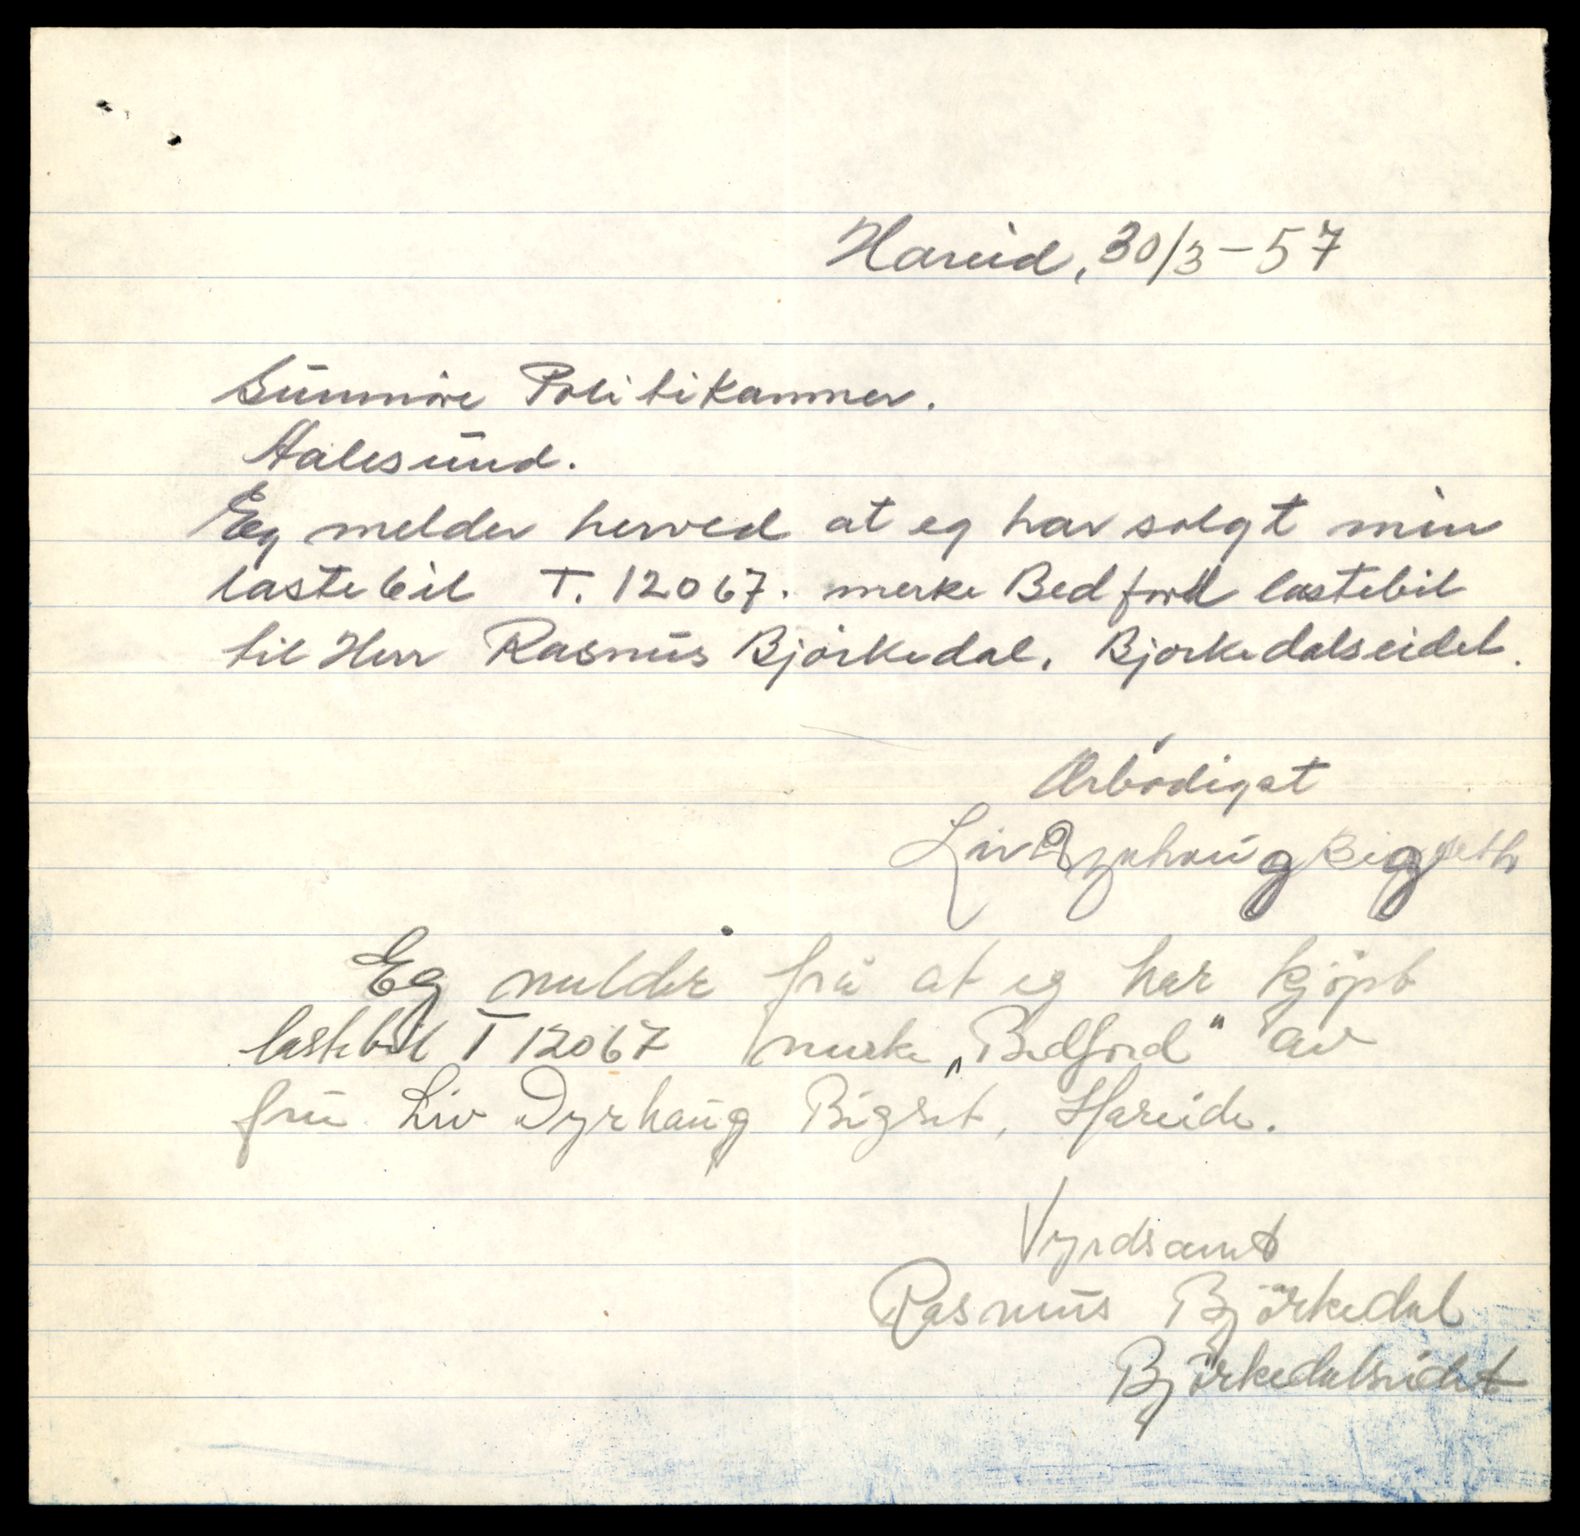 Hareid, 30/3-57
Sunnmöre Politikammer.
Aalesund.
Eg melder herved at eg har solgt min
lastebil T. 12067. merke Bedford lastebil
til Herr Rasmus Björkedal, Bjorkedalseidet.
Ærbödigst
Liv Dyrhaug Bigseth
Eg melder frå at eg har kjöpt
lastebil T 12067 merke „Bedford" av
fru Liv Dyrhaug Bigset, Hareide.
Vyrdsamt
Rasmus Björkedal
Björkedalseidet